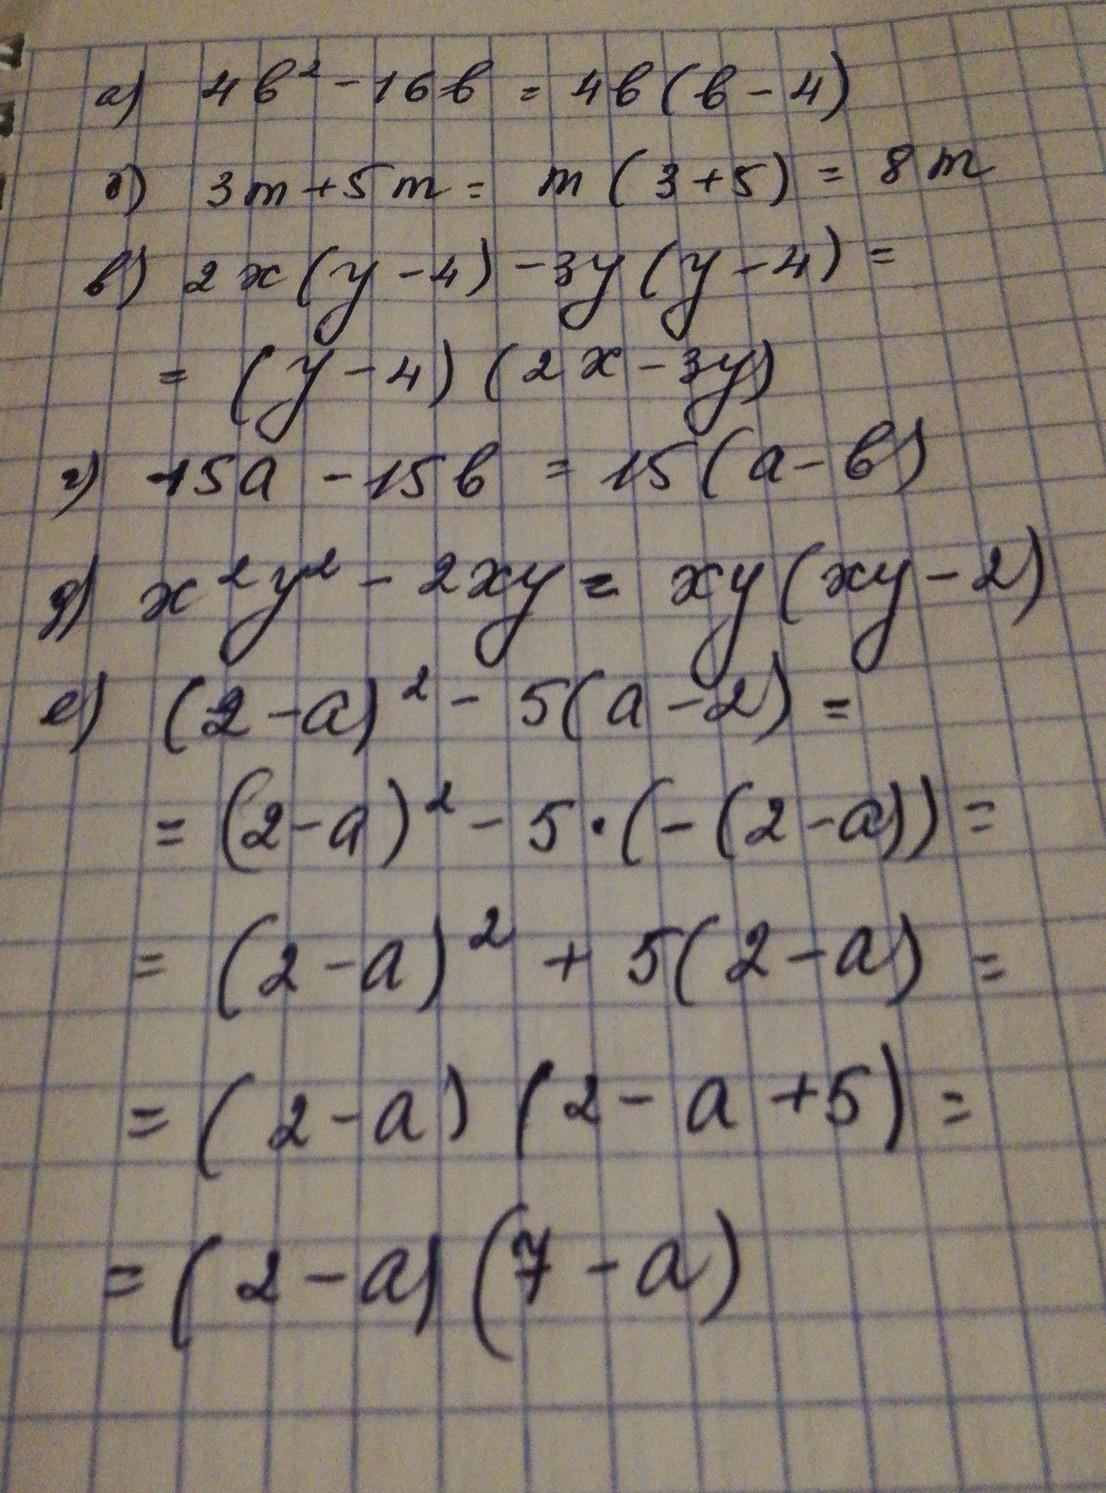 а) 4b² - 16b = 4b(b - 4)
б) 3m + 5m = m(3 + 5) = 8m
в) 2x(y - 4) - 3y(y - 4) =
= (y - 4)(2x - 3y)
г) 15a - 15b = 15(a - b)
д) x²y² - 2xy = xy(xy - 2)
е) (2 - a)² - 5(a - 2) =
= (2 - a)² - 5·(-(2 - a)) =
= (2 - a)² + 5(2 - a) =
= (2 - a)(2 - a + 5) =
= (2 - a)(7 - a)